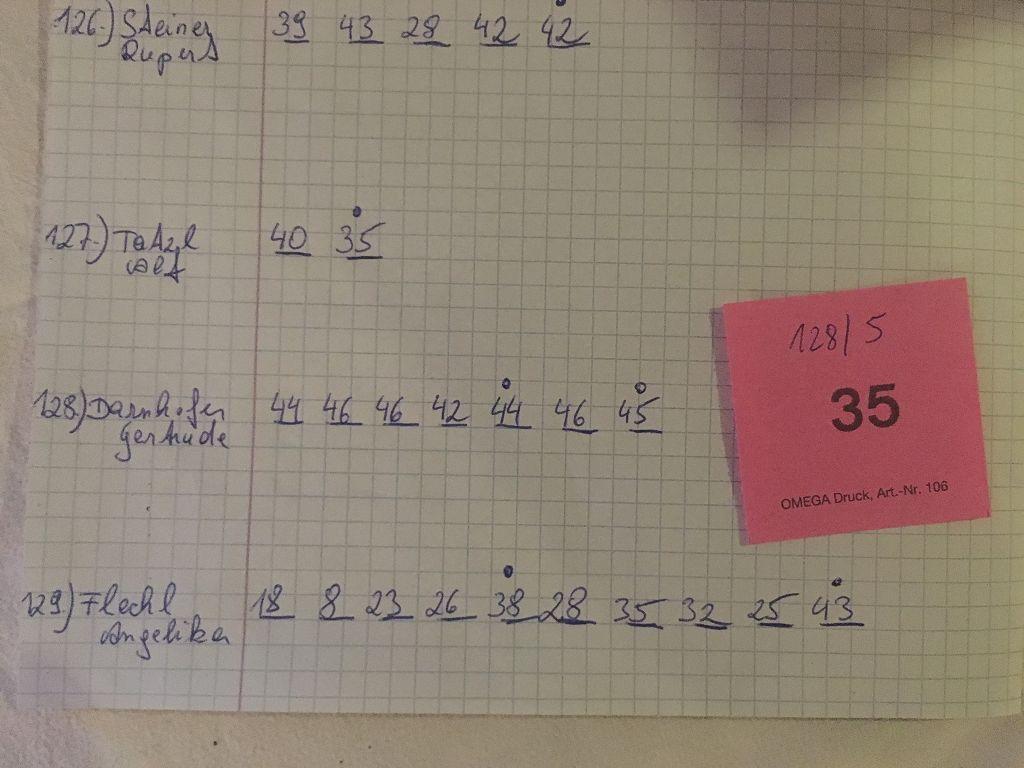 126.) Steiner 39 43 28 42 42
Rupert
127.) Tatzl 40 35
Alf
128.) Darnhofer 44 46 46 42 44 46 45
Gertrude
128/5
35
OMEGA Druck, Art.-Nr. 106
129.) Flechl 18 8 23 26 38 28 35 32 25 43
Angelika